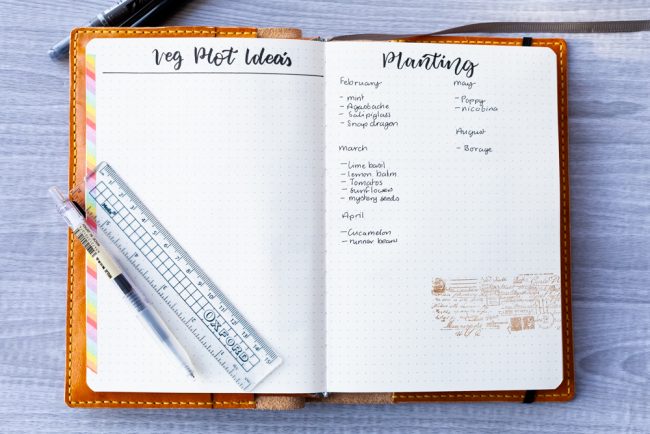 Veg Plot Ideas
Planting
February
- mint
- Agastache
- Salpiglass
- Snapdragon
march
- lime basil
- lemon balm
- Tomatos
- Sunflowers
- mystery seeds
April
- Cucamelon
- runner bean
may
- Poppy
- nicobina
August
- Borage
OXFORD